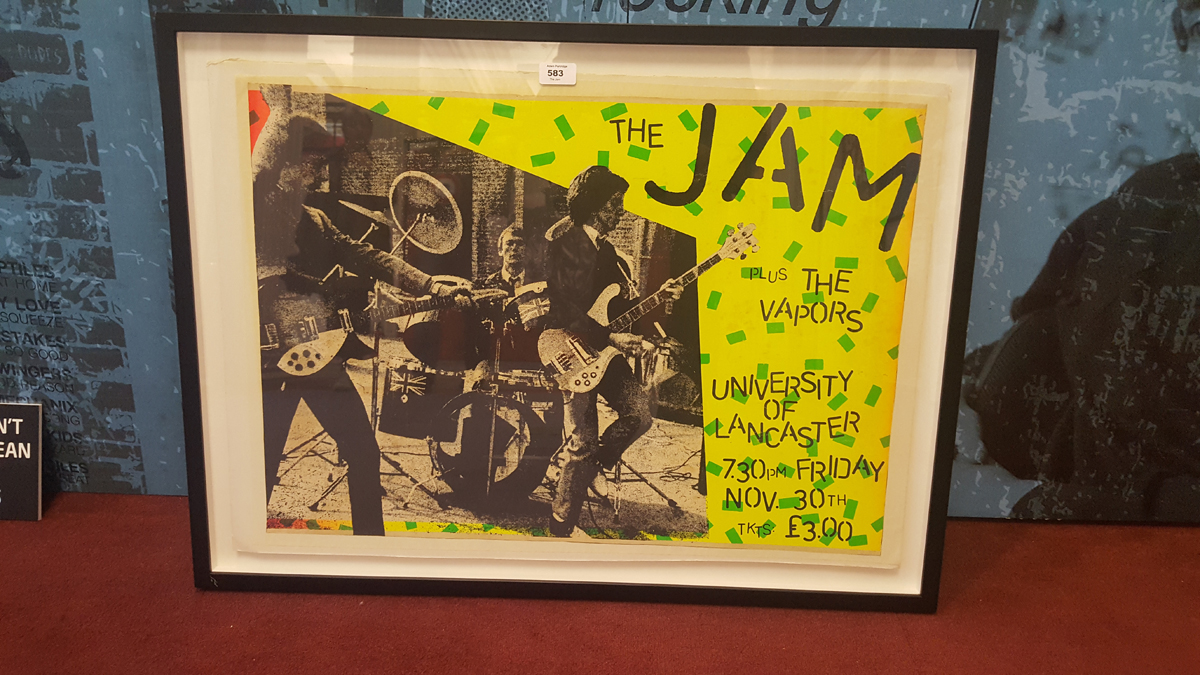 rocking
583
THE JAM
PLUS THE
VAPORS
UNIVERSITY
OF
LANCASTER
7.30PM FRIDAY
NOV. 30TH
TKTS: £3.00
PTILES
AT HOME
Y LOVE
SQUEEZE
STAKES
SO GOOD
WINGERS
NIX
KIDS
N'T
EAN